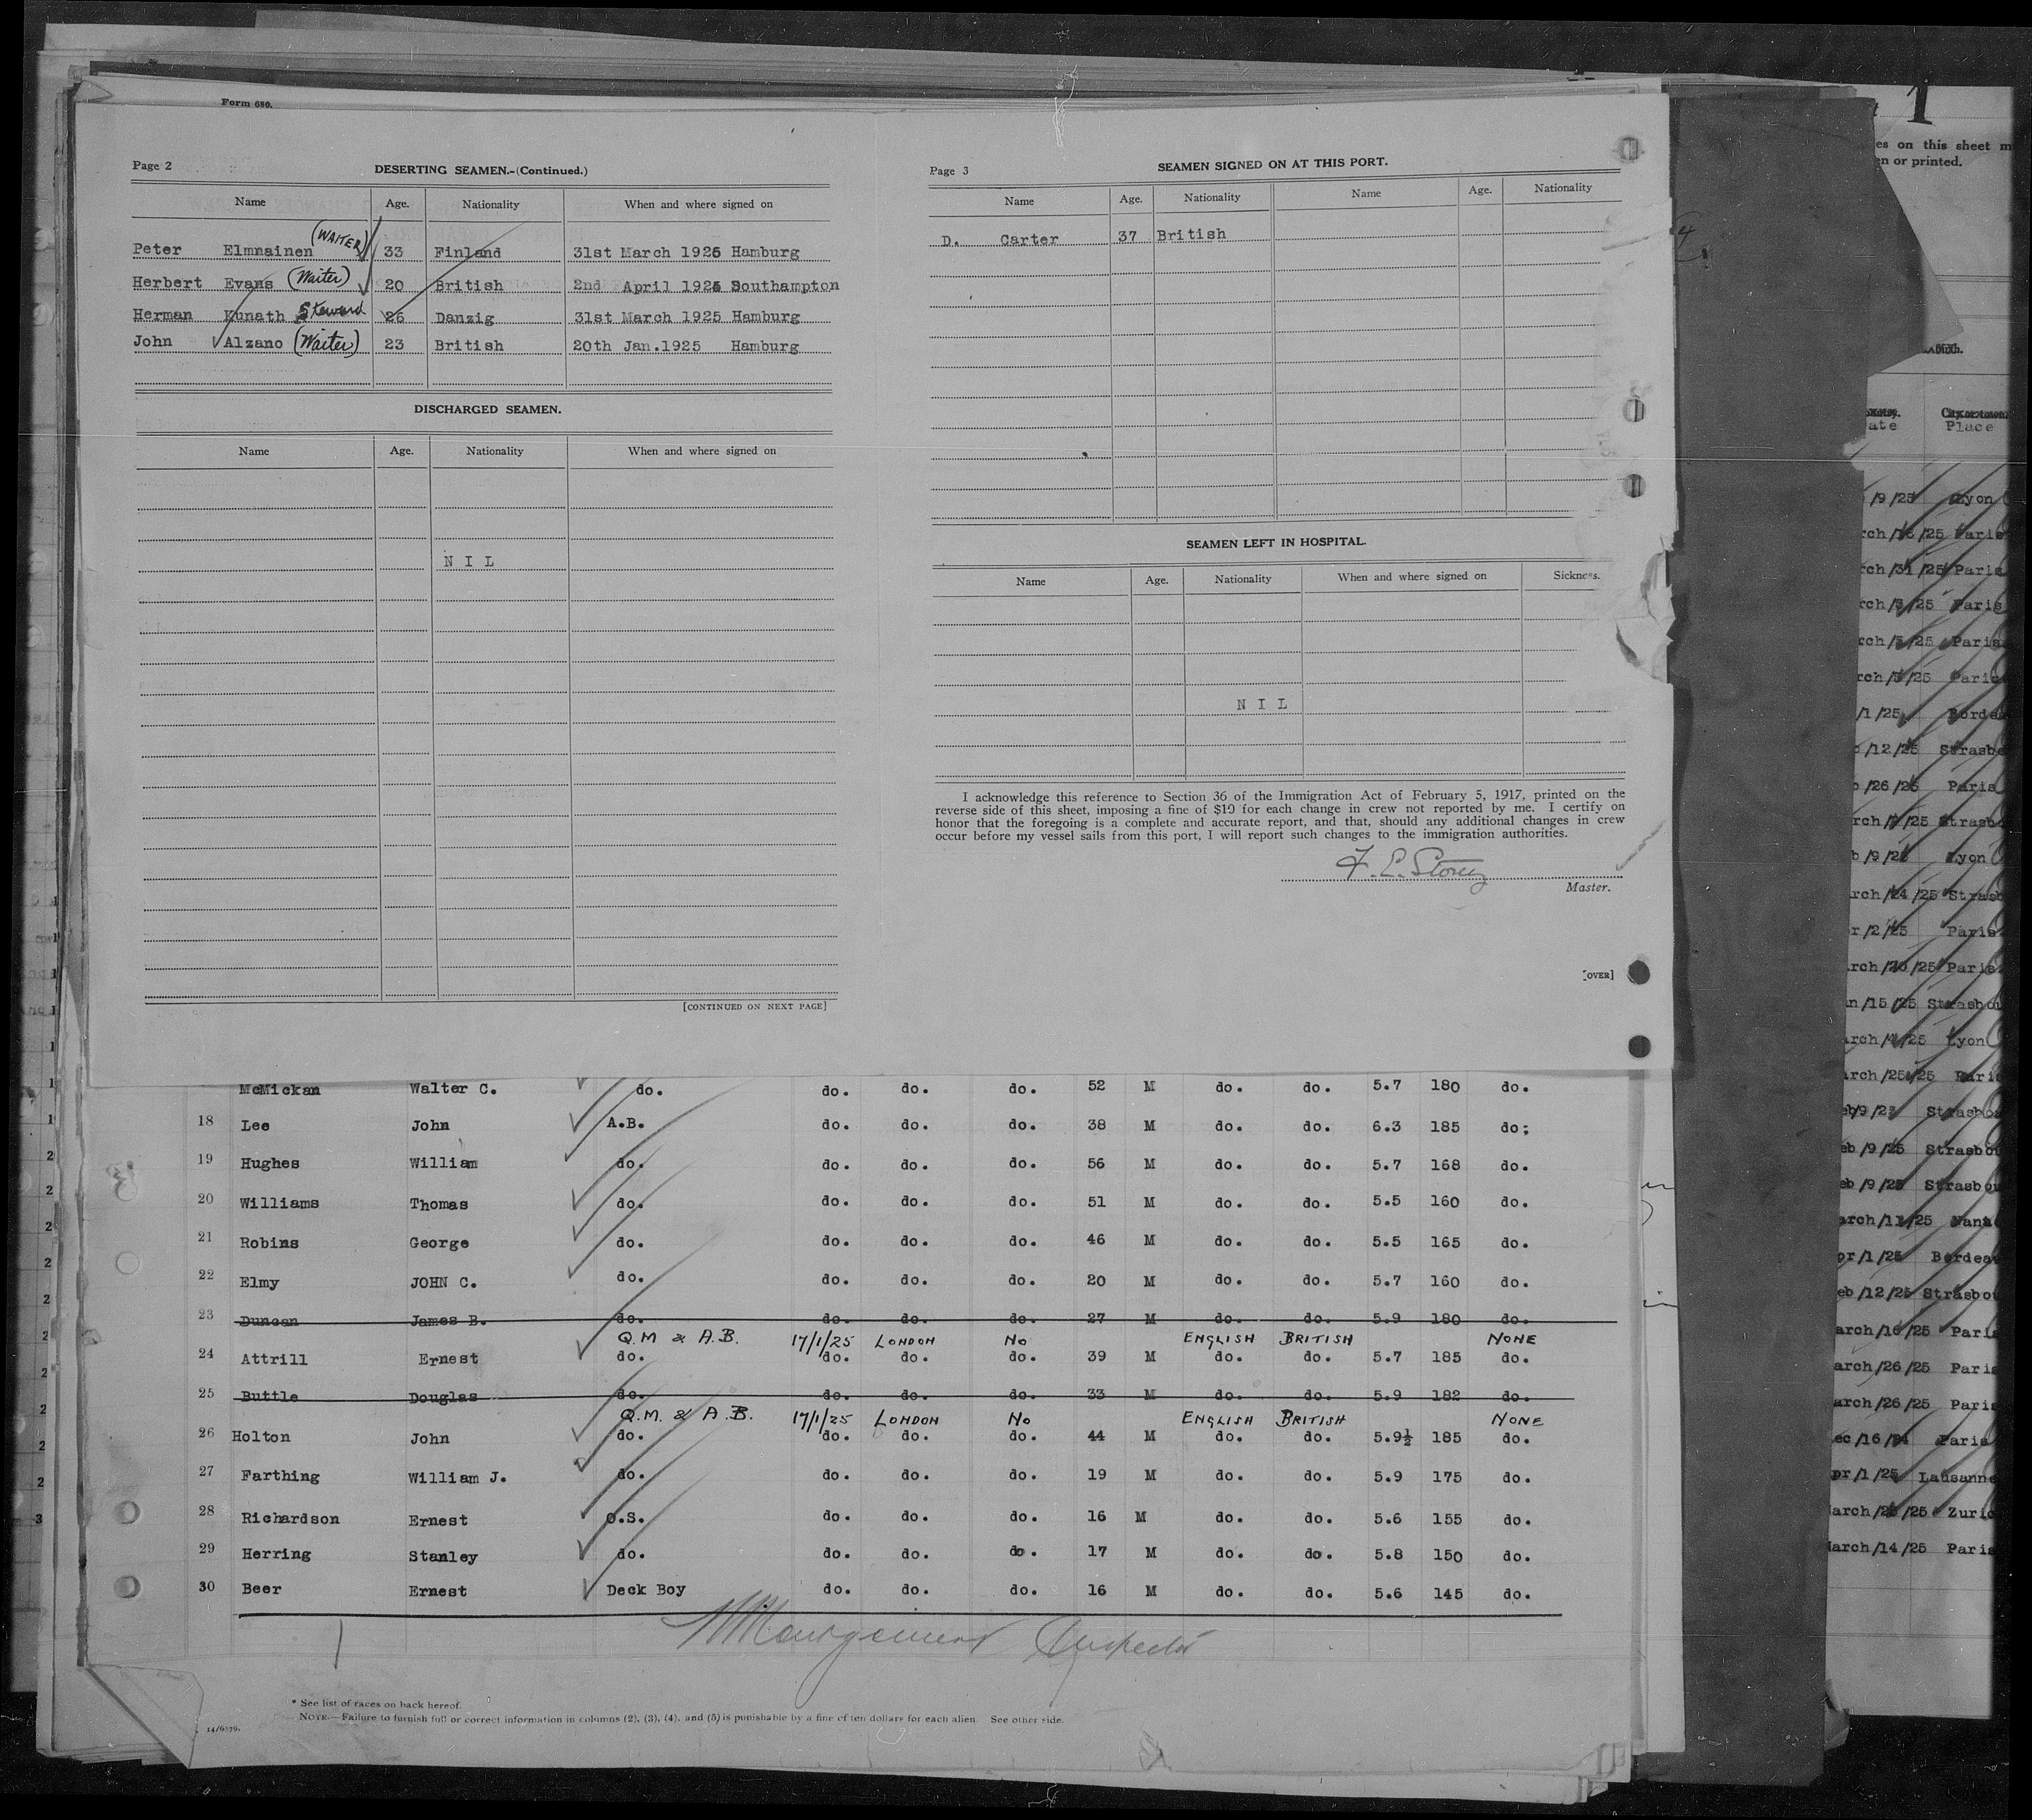 Form 680.
Page 2
DESERTING SEAMEN.-(Continued.)
Name Age. Nationality When and where signed on
(WAITER)
Peter Elmnainen 33 Finland 31st March 1925 Hamburg
Herbert Evans (Waiter) 20 British 2nd April 1925 Southampton
Herman Kunath Steward 26 Danzig 31st March 1925 Hamburg
John Alzano (Waiter) 23 British 20th Jan.1925 Hamburg
DISCHARGED SEAMEN.
Name Age. Nationality When and where signed on
N I L
[CONTINUED ON NEXT PAGE]
Page 3
SEAMEN SIGNED ON AT THIS PORT.
Name Age. Nationality Name Age. Nationality
D. Carter 37 British
SEAMEN LEFT IN HOSPITAL.
Name Age. Nationality When and where signed on Sickness.
N I L
I acknowledge this reference to Section 36 of the Immigration Act of February 5, 1917, printed on the
reverse side of this sheet, imposing a fine of $10 for each change in crew not reported by me. I certify on
honor that the foregoing is a complete and accurate report, and that, should any additional changes in crew
occur before my vessel sails from this port, I will report such changes to the immigration authorities.
F. E. Storey
Master.
[OVER]
McMickan Walter C. do. do. do. do. 52 M do. do. 5.7 180 do.
18 Lee John A.B. do. do. do. 38 M do. do. 6.3 185 do;
19 Hughes William do. do. do. do. 56 M do. do. 5.7 168 do.
20 Williams Thomas do. do. do. do. 51 M do. do. 5.5 160 do.
21 Robins George do. do. do. do. 46 M do. do. 5.5 165 do.
22 Elmy JOHN C. do. do. do. do. 20 M do. do. 5.7 160 do.
23 Duncan James B. do. do. do. do. 27 M do. do. 5.9 180 do.
Q.M & A.B. 17/1/25 LONDON No ENGLISH BRITISH NONE
24 Attrill Ernest do. do. do. do. 39 M do. do. 5.7 185 do.
25 Buttle Douglas do. do. do. do. 33 M do. do. 5.9 182 do.
Q.M. & A.B. 17/1/25 LONDON No ENGLISH BRITISH NONE
26 Holton John do. do. do. do. 44 M do. do. 5.9½ 185 do.
27 Farthing William J. do. do. do. do. 19 M do. do. 5.9 175 do.
28 Richardson Ernest O.S. do. do. do. 16 M do. do. 5.6 155 do.
29 Herring Stanley do. do. do. do. 17 M do. do. 5.8 150 do.
30 Beer Ernest Deck Boy do. do. do. 16 M do. do. 5.6 145 do.
Inspector
* See list of races on back hereof.
NOTE.—Failure to furnish full or correct information in columns (2), (3), (4), and (5) is punishable by a fine of ten dollars for each alien. See other side.
1
es on this sheet m
en or printed.
ate Place
/9/25 Lyon
rch/16/25 Paris
rch/31/25 Paris
rch/3/25 Paris
rch/5/25 Paris
rch/5/25 Paris
/1/25 Bordea
/12/25 Strasbo
/26/25 Paris
rch/7/25 Strasbo
b/9/25 Lyon
rch/24/25 Strasb
r/2/25 Paris
rch/20/25 Paris
n/15/25 Strasbou
arch/4/25 Lyon
arch/25/25 Paris
eb/9/25 Strasbo
eb/9/25 Strasbou
eb/9/25 Strasbou
arch/11/25 Nant
pr/1/25 Bordeau
eb/12/25 Strasbou
arch/16/25 Paris
arch/26/25 Paris
arch/26/25 Paris
ec/16/24 Paris
pr/1/25 Lausanne
arch/25/25 Zuric
March/14/25 Paris